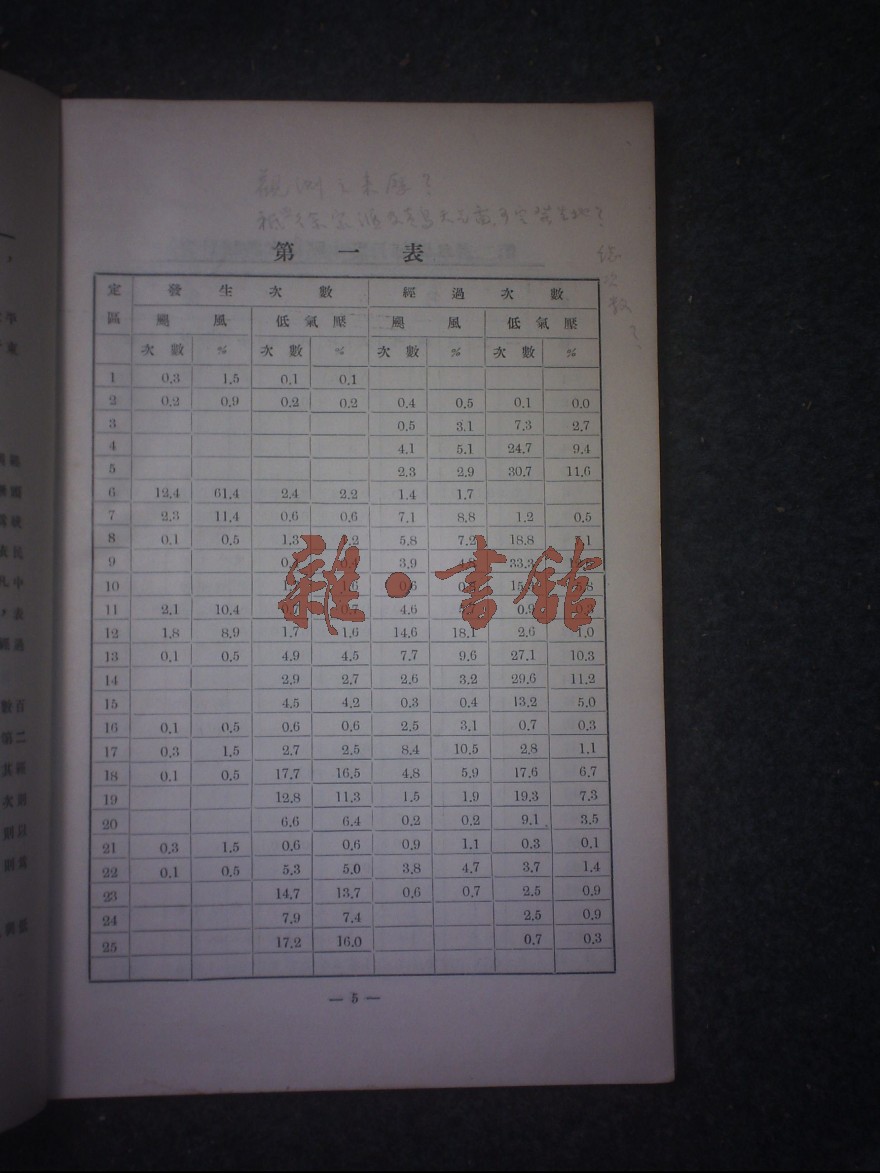 觀測之來歷?
第 一 表
定 區 發 生 次 數 經 過 次 數
颶 風 低 氣 壓 颶 風 低 氣 壓
次 數 % 次 數 % 次 數 % 次 數 %
1 0.3 1.5 0.1 0.1
2 0.2 0.9 0.2 0.2 0.4 0.5 0.1 0.0
3 0.5 3.1 7.3 2.7
4 4.1 5.1 24.7 9.4
5 2.3 2.9 30.7 11.6
6 12.4 61.4 2.4 2.2 1.4 1.7
7 2.3 11.4 0.6 0.6 7.1 8.8 1.2 0.5
8 0.1 0.5 1.3 5.8 7.2 18.8
9 3.9
10
11 2.1 10.4 4.6
12 1.8 8.9 1.7 1.6 14.6 18.1 2.6 1.0
13 0.1 0.5 4.9 4.5 7.7 9.6 27.1 10.3
14 2.9 2.7 2.6 3.2 29.6 11.2
15 4.5 4.2 0.3 0.4 13.2 5.0
16 0.1 0.5 0.6 0.6 2.5 3.1 0.7 0.3
17 0.3 1.5 2.7 2.5 8.4 10.5 2.8 1.1
18 0.1 0.5 17.7 16.5 4.8 5.9 17.6 6.7
19 12.8 11.3 1.5 1.9 19.3 7.3
20 6.6 6.4 0.2 0.2 9.1 3.5
21 0.3 1.5 0.6 0.6 0.9 1.1 0.3 0.1
22 0.1 0.5 5.3 5.0 3.8 4.7 3.7 1.4
23 14.7 13.7 0.6 0.7 2.5 0.9
24 7.9 7.4 2.5 0.9
25 17.2 16.0 0.7 0.3
— 5 —
總次數?
雜·書館